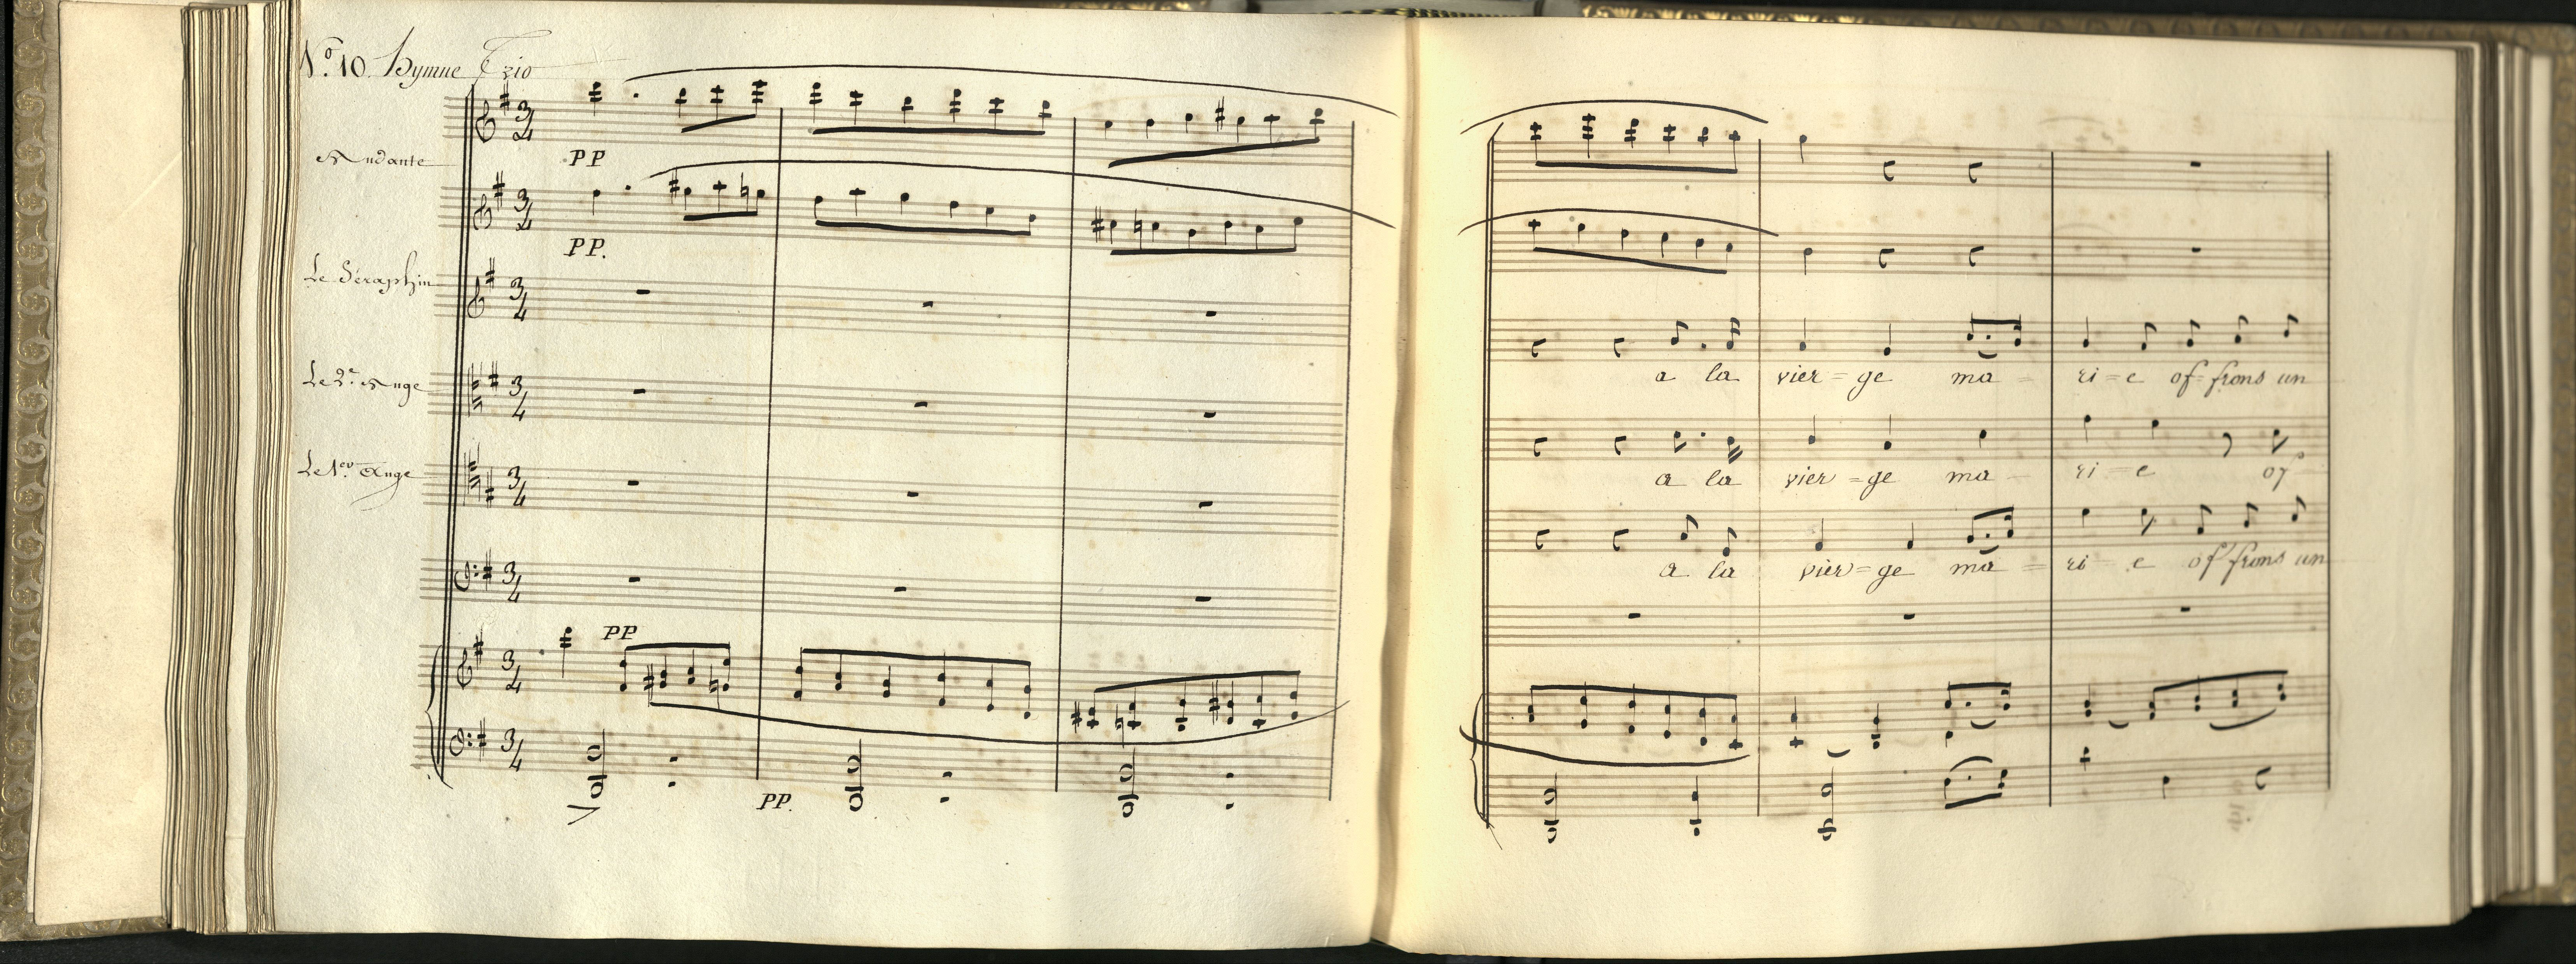 Nº. 10. Hymne Trio
Andante
PP
PP.
Le Séraphin
Le 2e. Ange
Le 1er. Ange
3/4
3/4
3/4
3/4
3/4
3/4
PP
3/4
3/4
PP.
a la vier = ge ma = ri = e of = frons un
a la vier = ge ma = ri = e of
a la vier = ge ma = ri = e of frons un